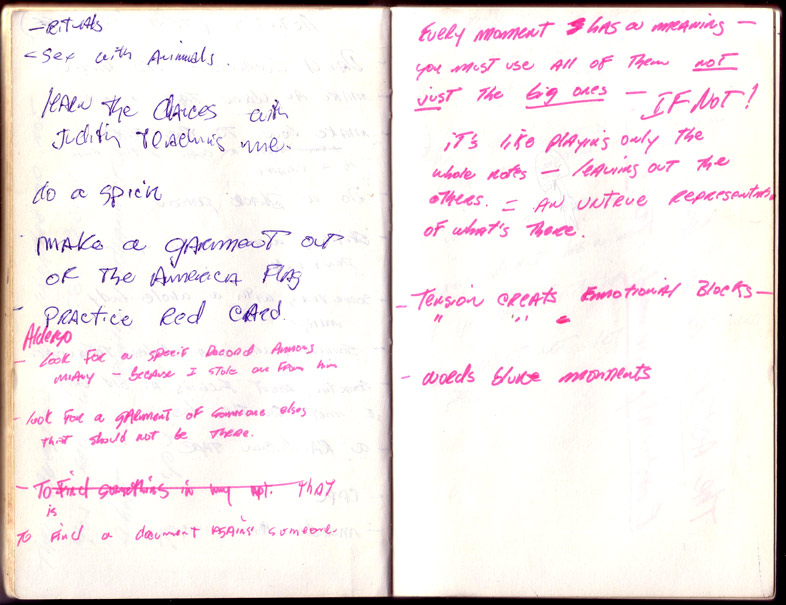 - Rituals
- Sex with Animals.
learn the dances with
Judith teaching me.
do a spich
make a garment out
of the America Flag
- Practice Red Card.
- Look for a specif Record Among
many - Because I stole one From him
- look For a garment of someone elses
that should not be there.
- To Find something in my apt. that
is
To Find a document against someone.
Every moment has a meaning -
you must use all of them not
just the big ones - IF NOT!
it's like playing only the
whole notes - leaving out the
others. = AN UNTRUE Representation
of what's there.
- Tension creats Emotional Blocks -
" " "
- words blure moments